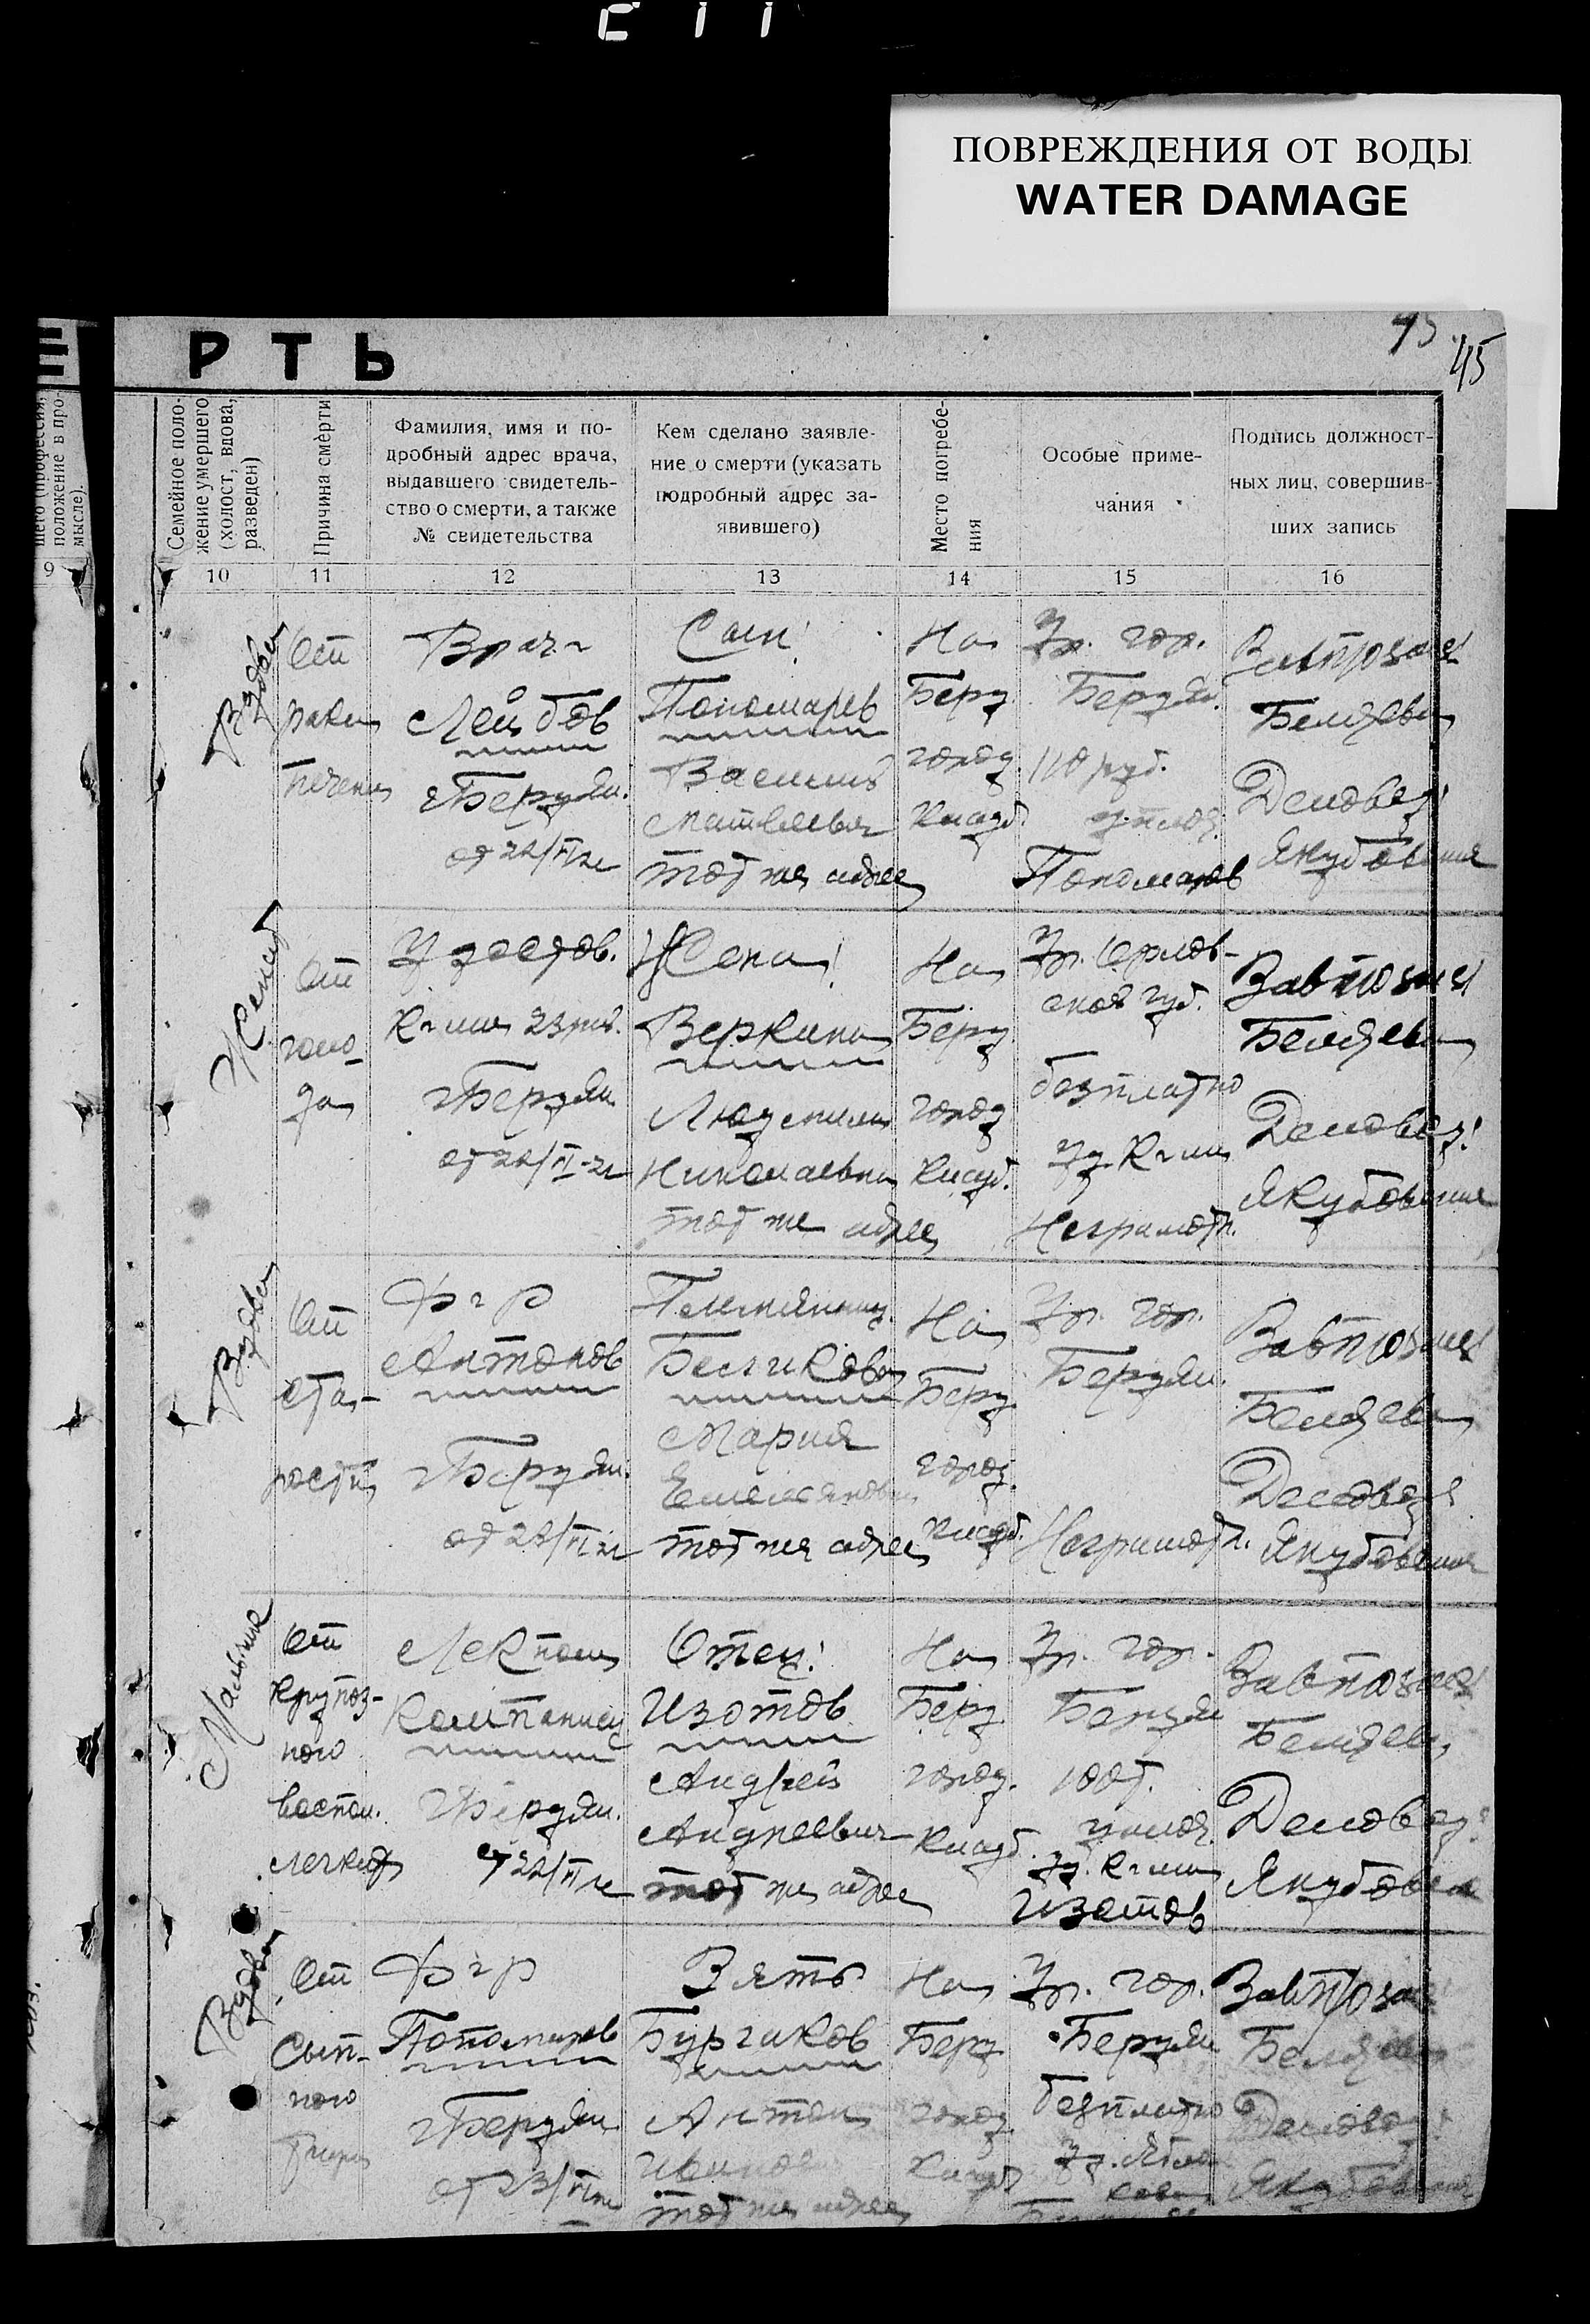 ПОВРЕЖДЕНИЯ ОТ ВОДЫ
WATER DAMAGE
45
РТЬ
положение в про-
мысле).
9
Семейное поло-
жение умершего
(холост, вдова,
разведен)
Причина смерти
Фамилия, имя и по-
дробный адрес врача,
выдавшего свидетель-
ство о смерти, а также
№ свидетельства
Кем сделано заявле-
ние о смерти (указать
подробный адрес за-
явившего)
Место погребе-
ния
Особые приме-
чания
Подпись должност-
ных лиц, совершив-
ших запись
10 11 12 13 14 15 16
Вдова
От
рака
печени
Врач
Лейбов
г Бердян.
от 22/VI
Сын
Пономарев
Василий
Матвеевич
тот же адрес
На
Берд
город
кладб.
Гр. гор.
Бердян.
110 руб.
Пономарев
Завтрозап
Беляева
Делов
Якубовская
Женат
От
голо-
да
Удостов.
23
г Бердян
от 22/VI
Жена
Веркина
Людмила
Николаевна
тот же адрес
На
Берд
город
кладб.
Гр. Орлов-
ской губ.
безплатно
Неграмотн.
Беляева
Делов
Якубовская
Вдова
От
ста-
рости
Антонов
г Бердян.
от 22/VI
Племянниц
Бесчикова
Мария
Емельяновна
тот же адрес
На
Берд
город.
кладб.
Гр. гор.
Бердян.
Неграмотн.
Беляева
Делов
Якубовская
Мальчик
От
крупоз-
ного
воспал.
легких
Лекпом
Компаниец
г Бердян.
от 22/VI
Отец
Изотов
Андрей
Андреевич
тот же адрес
На
Берд
город.
кладб.
Гр. гор.
Бердян
100 т.
Изотов
Беляева
Делов
Якубовская
Вдова
От
сып-
ного
тифа
Пономарев
г Бердян
от 23/VI
Зять
Бурчаков
Антон
Иванович
тот же адрес
На
Берд
город
кладб
Гр. гор.
Бердян
безплатно
Беляева
Делов
Якубовская